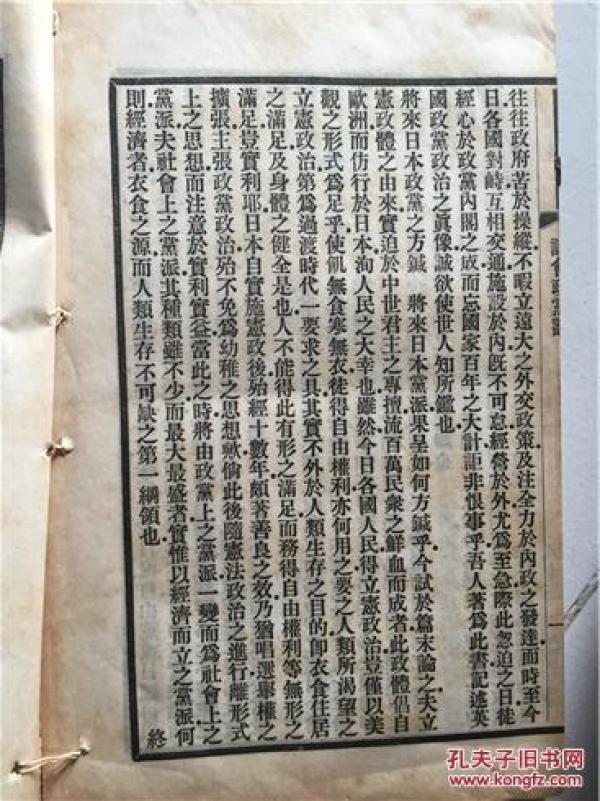 往往政府苦於操縱不暇立遠大之外交政策及注全力於內政之發達而時至今
日各國對峙互相交通施設於內旣不可怠經營於外尤爲至急際此忽迫之日徒
經心於政黨內閣之成而忘國家百年之大計詎非恨事乎吾人著爲此書記述英
國政黨政治之眞像誠欲使世人知所鑑也
將來日本政黨之方鍼 將來日本黨派果呈如何方鍼乎今試於篇末論之夫立
憲政體之由來實迫於中世君主之專擅流百萬民衆之鮮血而成者此政體倡自
歐洲而仿行於日本洵人民之大幸也雖然今日各國人民得立憲政治豈僅以美
觀之形式爲足乎使飢無食寒無衣徒得自由權利亦何用之要之人類所渴望之
立憲政治第爲過渡時代一要求之具其實不外於人類生存之目的卽衣食住居
之滿足及身體之健全是也人不能得此有形之滿足而務得自由權利等無形之
滿足豈實利耶日本自實施憲政後始經十數年頗著善良之效乃猶唱選舉權之
擴張主張政黨政治殆不免爲幼稚之思想歟倘此後隨憲法政治之進行離形式
上之思想而注意於實利實益當此之時將由政黨上之黨派一變而爲社會上之
黨派夫社會上之黨派其種類雖不少而最大最盛者實惟以經濟而立之黨派何
則經濟者衣食之源而人類生存不可缺之第一綱領也
終
孔夫子旧书网
www.kongfz.com